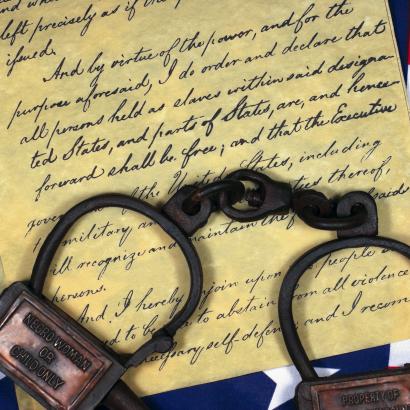 left precisely as if th
issued.
And by virtue of the power, and for the
purpose aforesaid, I do order and declare that
all persons held as slaves within said designa-
ted States, and parts of States, are, and hence-
forward shall be free; and that the Executive
of the United States, including
military an ties thereof,
ill recognize and maintain the said
persons.
And I hereby enjoin upon the people
ed to be to abstain from all violence
necessary self-defen and I recom
NEGRO WOMAN
OR
CHILD ONLY
PROPERTY OF